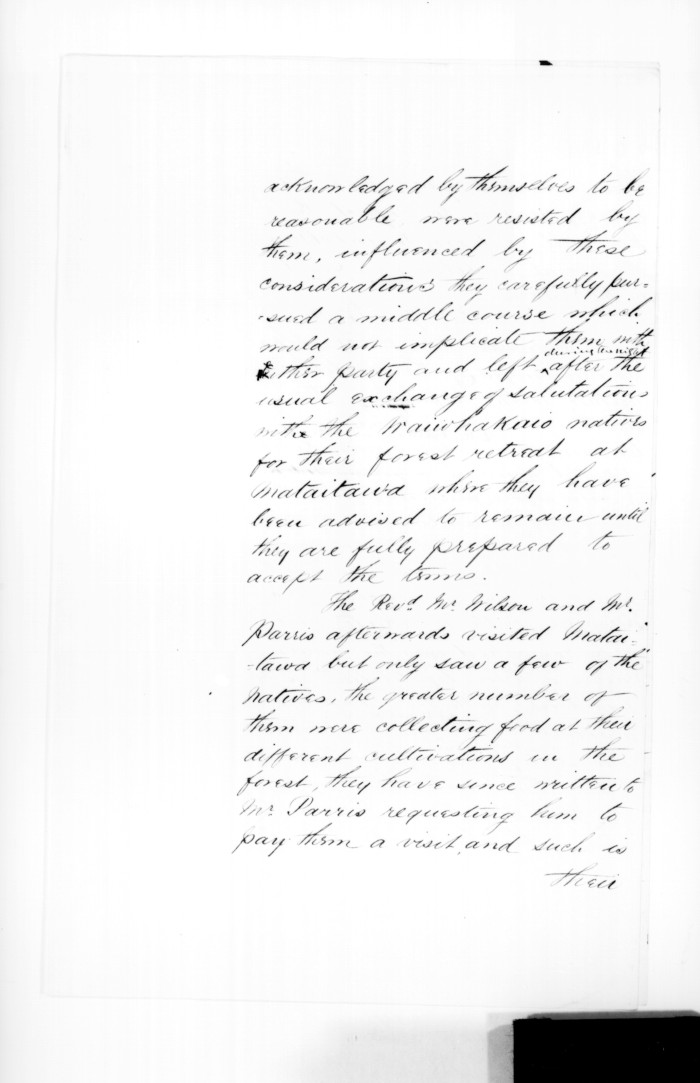 acknowledged by themselves to be
reasonable were resisted by
them, influenced by these
considerations they carefully pur-
-sued a middle course which
would not implicate them with
either party and left during the night after the
usual exchange of salutations
with the Waiwhakaio natives
for their forest retreat at
Mataitawa where they have
been advised to remain until
they are fully prepared to
accept the terms.
The Revd. Mr. Wilson and Mr.
Parris afterwards visited Matai-
-tawa but only saw a few of the
Natives, the greater number of
them were collecting food at their
different cultivations in the
forest, they have since written to
Mr. Parris requesting him to
pay them a visit, and such is
their